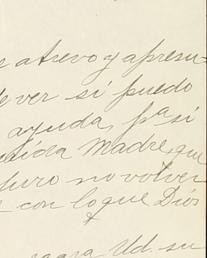 atrevo y apresu-
ver si puedo
ayuda, pasi
Madre, que
no volver
con lo que Dios
Ud. su